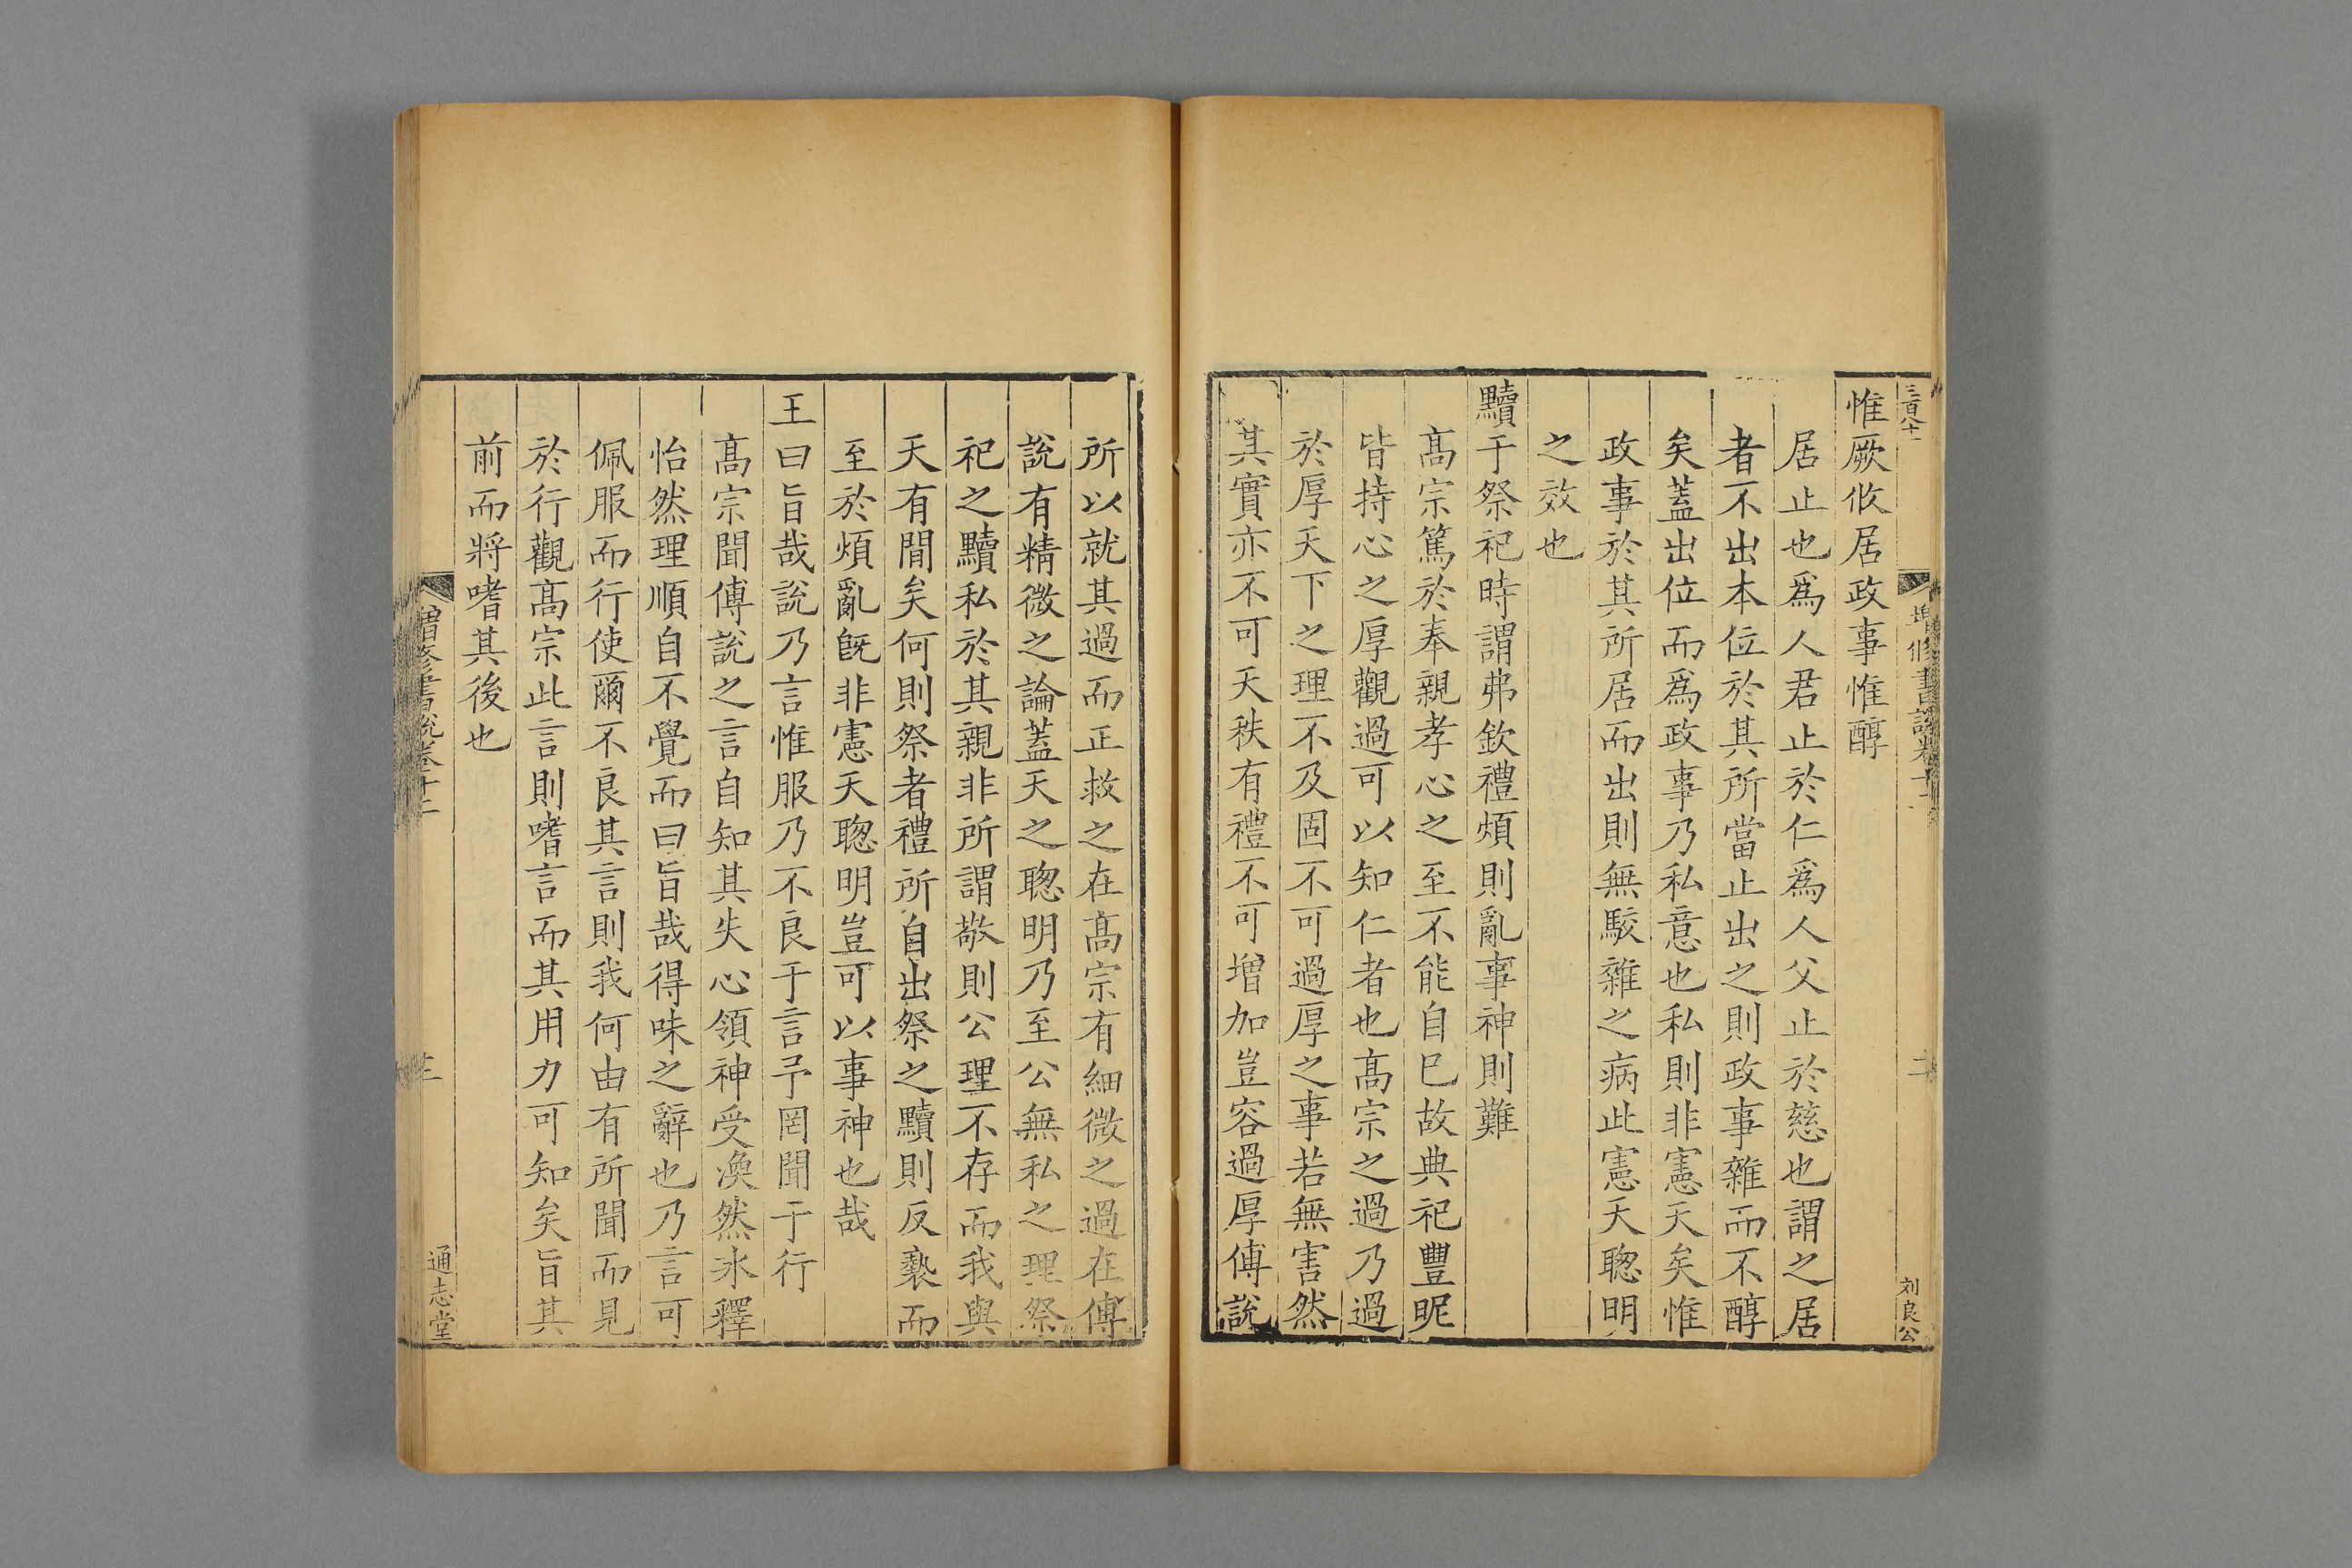 三百八十
增修書說卷十二
刘良公
惟厥攸居政事惟醇
居止也爲人君止於仁爲人父止於慈也謂之居
者不出本位於其所當止出之則政事雜而不醇
矣蓋出位而爲政事乃私意也私則非憲天矣惟
政事於其所居而出則無駁雜之病此憲天聦明
之效也
黷于祭祀時謂弗欽禮煩則亂事神則難
髙宗篤於奉親孝心之至不能自巳故典祀豐昵
皆持心之厚觀過可以知仁者也髙宗之過乃過
於厚天下之理不及固不可過厚之事若無害然
其實亦不可天秩有禮不可增加豈容過厚傅說
所以就其過而正救之在髙宗有細微之過在傅
說有精微之論蓋天之聦明乃至公無私之理祭
祀之黷私於其親非所謂敬則公理不存而我與
天有間矣何則祭者禮所自出祭之黷則反褻而
至於煩亂旣非憲天聦明豈可以事神也哉
王曰旨哉說乃言惟服乃不良于言予罔聞于行
髙宗聞傅說之言自知其失心領神受渙然冰釋
怡然理順自不覺而曰旨哉得味之辭也乃言可
佩服而行使爾不良其言則我何由有所聞而見
於行觀髙宗此言則嗜言而其用力可知矣旨其
前而將嗜其後也
增修書說卷十二
三
通志堂